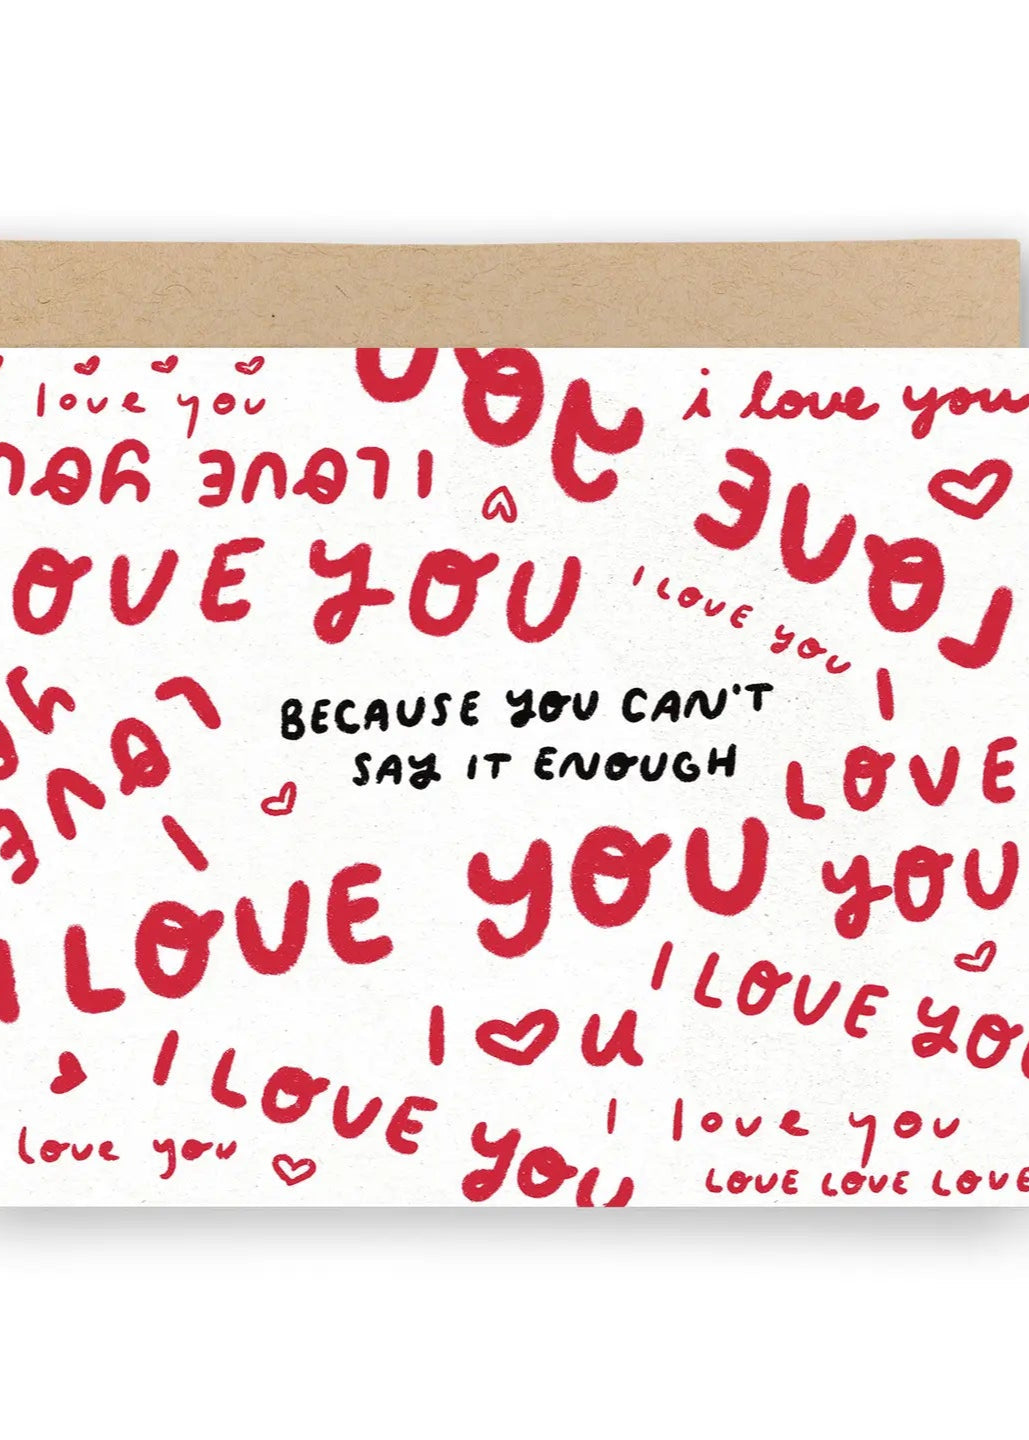 love you
i love you
YOU
I LOVE YOU
LOVE
LOVE YOU
I LOVE YOU
I
BECAUSE YOU CAN'T
SAY IT ENOUGH
LOVE
LOVE
YOU
I
I LOVE YOU
I LOVE YOU
I U
I LOVE YOU
I love you
love you
LOVE LOVE LOVE